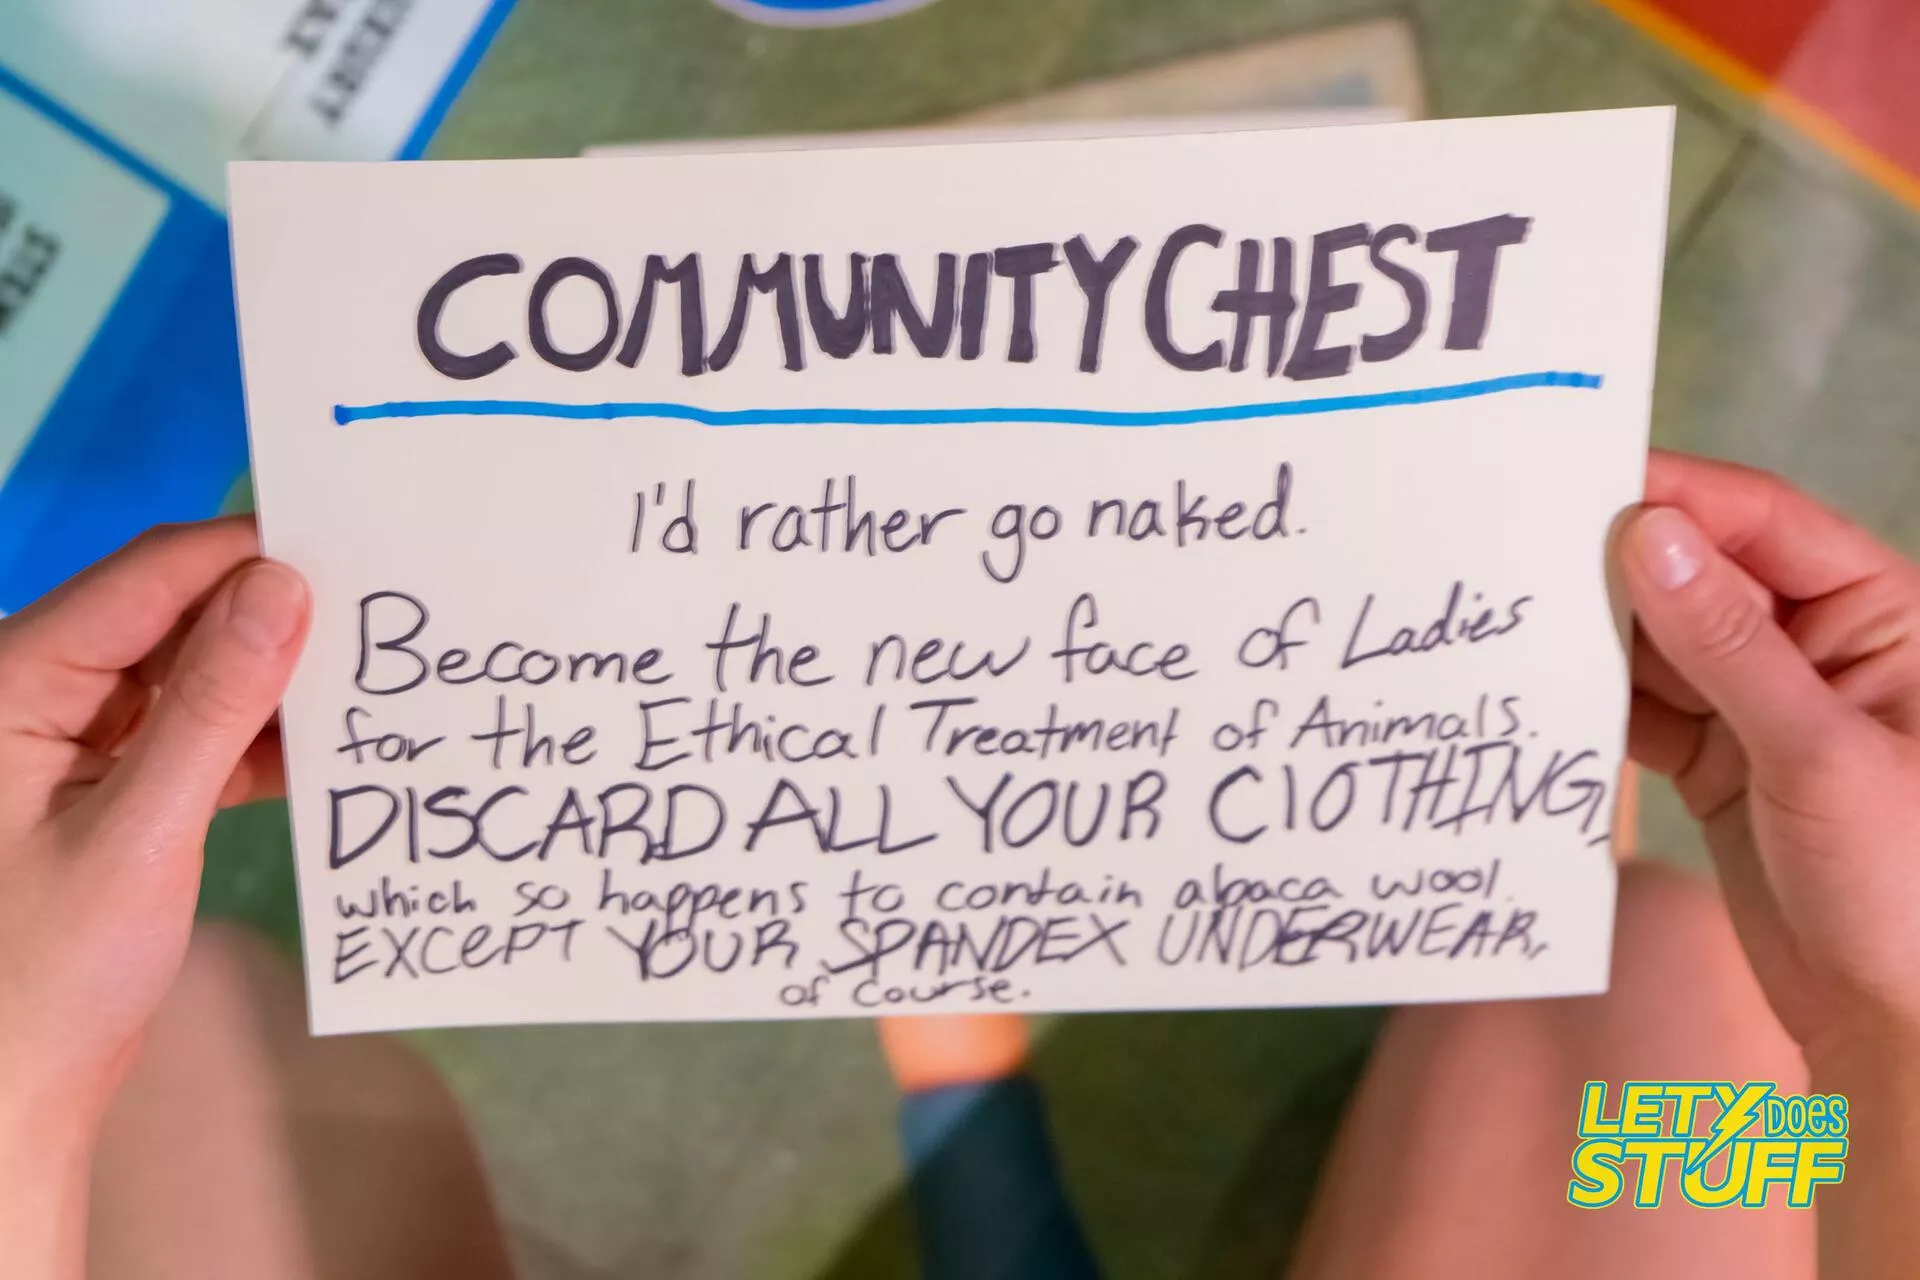 COMMUNITY CHEST
I'd rather go naked.
Become the new face of Ladies
for the Ethical Treatment of Animals.
DISCARD ALL YOUR ClOTHING,
which so happens to contain alpaca wool.
EXCePT YOUR SPANDEX UNDERWEAR,
of course.
LETY DOES
STUFF